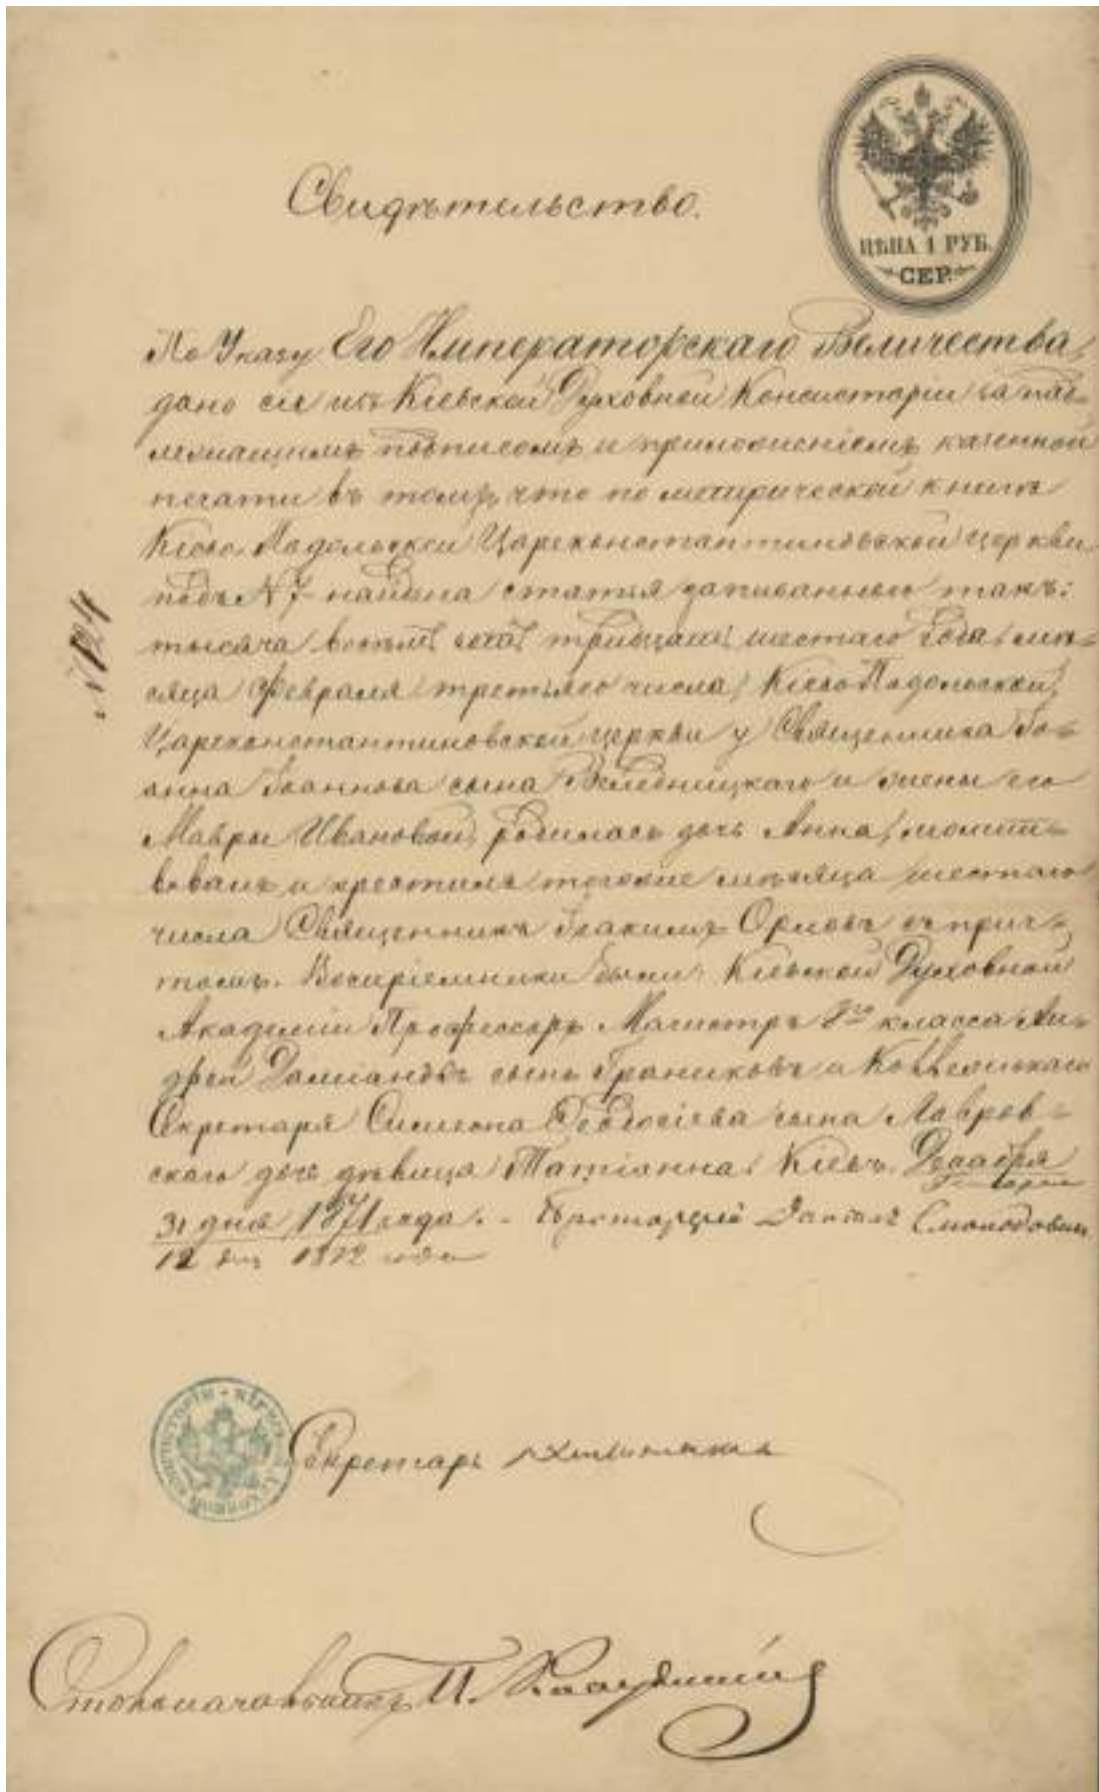 Свидѣтельство.
ЦѢНА 1 РУБ.
СЕР.
По Указу Его Императорскаго Величества,
дано сіе изъ Кіевской Духовной Консисторіи за над-
лежащимъ подписомъ и приложеніемъ казенной
печати въ томъ, что по метрической книгѣ
Кіево Подольской Цареконстантиновской церкви
подъ № 7 найдена статья записанная такъ:
тысяча восемь сотъ тридцать шестаго года, мѣ-
сяца Февраля третьяго числа, Кіево-Подольской,
Цареконстантиновской церкви у Священника Іо-
анна Іоаннова сына Веледницкаго и жены его
Мавры Ивановой, родилась дочь Анна, молитв-
вовалъ и крестилъ тогоже мѣсяца шестаго
числа Священникъ Іоакимъ Орловъ съ прич-
томъ. Воспріемники были: Кіевской Духовной
Академіи Профессоръ Магистръ класса Ан-
дрей сынъ Граниковъ и
Секретаря Симеона Ѳеодосіева сына Лавров-
скаго дочь дѣвица Татіанна. Кіевъ. Декабря
31 дня 1871 года. Протоіерей Смолодовичъ
12 дня 1872 года
№ 124
Секретарь
Столоначальникъ П.